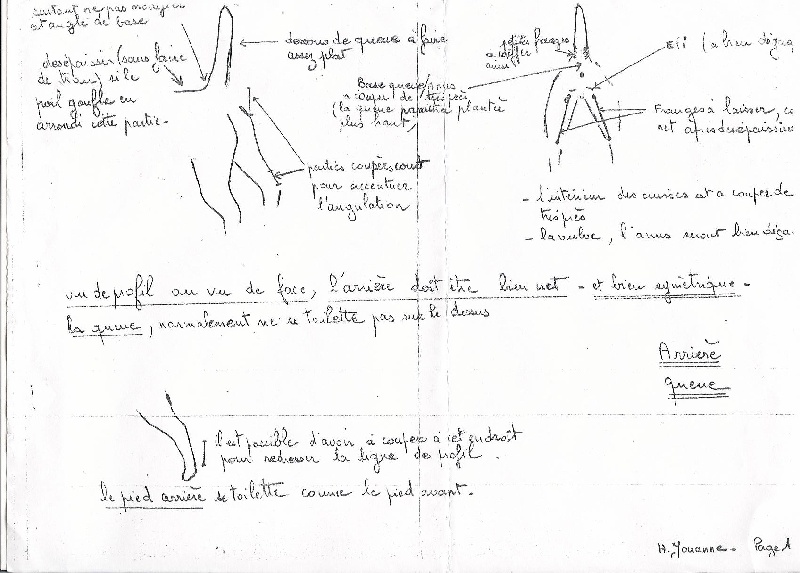 surtout ne pas marquer
et angle de base
desépaissir (sans faire
de trou) si le
poil gonfle en
arrondi cette partie.
dessous de queue à faire
assez plat
parties coupées court
pour accentuer
l'angulation
petites franges
Base queue
à couper de très près
(la queue paraîtra plantée
plus haut)
(à bien dégag
Franges à laisser, ce
net après desépaissir
- l'intérieur des cuisses est à couper de
très près
- la vulve, l'anus seront bien déga
vu de profil ou vu de face, l'arrière doit être bien net - et bien symétrique -
la queue, normalement ne se toilette pas sur le dessus
Arrière
queue
l'est possible d'avoir à couper à cet endroit
pour redresser la ligne de profil.
le pied arrière se toilette comme le pied avant.
H. Jouanne - Page 1